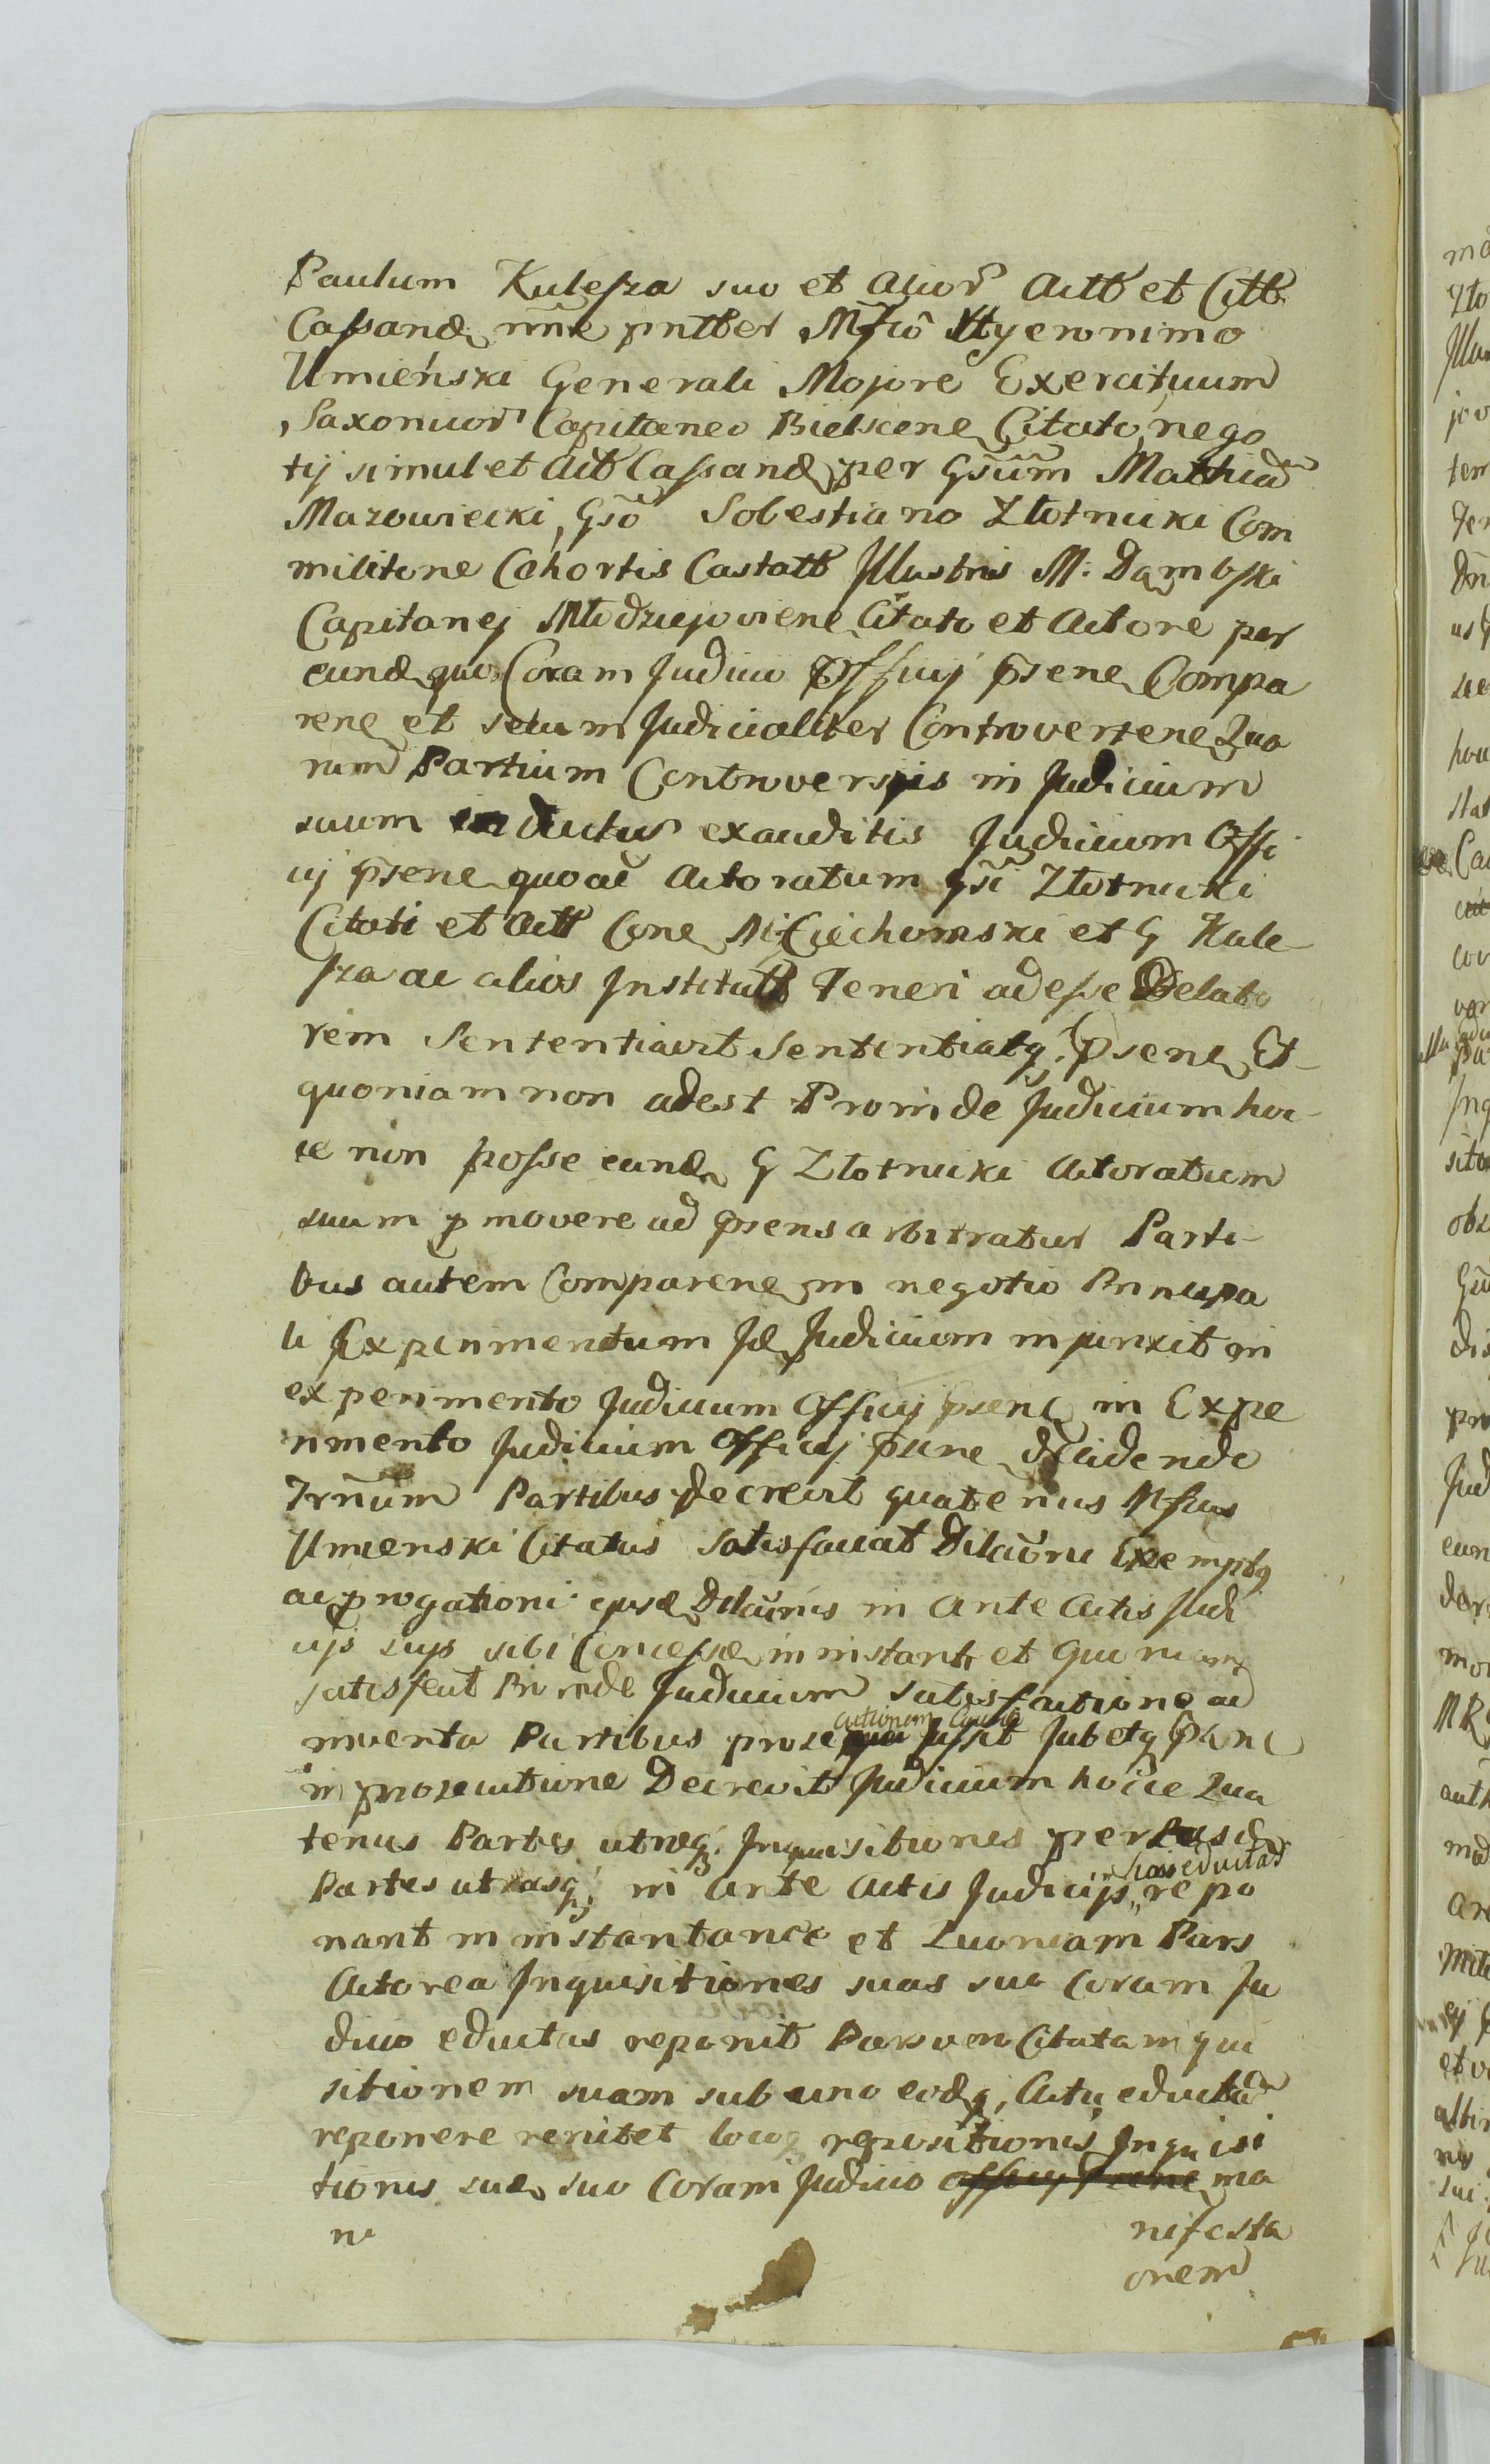 Paulum Kulesza suo et alior Actt et Citt
Cassand nne pntter Mfco Hyeronimo
Umieński Generali Majore Exercituum
Saxonicor Capitaneo Bielscene Citato nego
tij simul et Act Cassand per Gsum Mathia
Mazowiecki, Gso Sobestiano Złotnicki Com
militone Cohortis Castatt Illustris M. Dąmbski
Capitanej Młodziejoviene Citato et Actore per
eund quo Coram Judicio Officij psene Compa
rene et secum Judicialiter Controvertene Quo
rum Partium Controversijs in Judicium
suum inductus exauditis Judicium Offi
cij psene quoad Actoratum Gsi Złotnicki
Citati et Actt Cone M Ciechomski et G Kule
sza ac alios Institutt Teneri adesse Delato
rem Sententiavit Sententiatq. psene Et
quoniam non adest Proinde Judicium hoc
ce non posse eund G Złotnicki Actoratum
suum pmovere ad psens arbitratur Parti
bus autem Comparene in negotio Principa
li Experimentum Id Judicium injunxit in
experimento Judicium Officij psene in Expe
rimento Judicium Officij psene decidendo
Trnum Partibus decrevit quatenus Mfcus
Umienski Citatus Satisfaciat Dilaoni Exemptq
ac progationi ejusd Dilaonis in ante Actis Judi
cijs sups sibi Concessæ in instanti et quoniam
satisfecit Proinde Judicium satisfactione ad
inventa Partibus prose actionem Causa jussit Jubetq psene
in prosecutione Decrevit Judicium hocce Qua
tenus Partes utræq. Inquisitiones per easd
Partes utrasq. in ante Actis Judicijs in hocis eductas repo
nant in instantance et Quoniam Pars
Actorea Inquisitiones suas suo Coram Ju
dicio eductas reponit Pars vero Citata inqui
sitionem suam sub uno eodq, Actu educta
reponere renitet locoq repositionis Inquisi
tionis suæ suo Coram Judicio officij psene ma
ni nifesta
onem